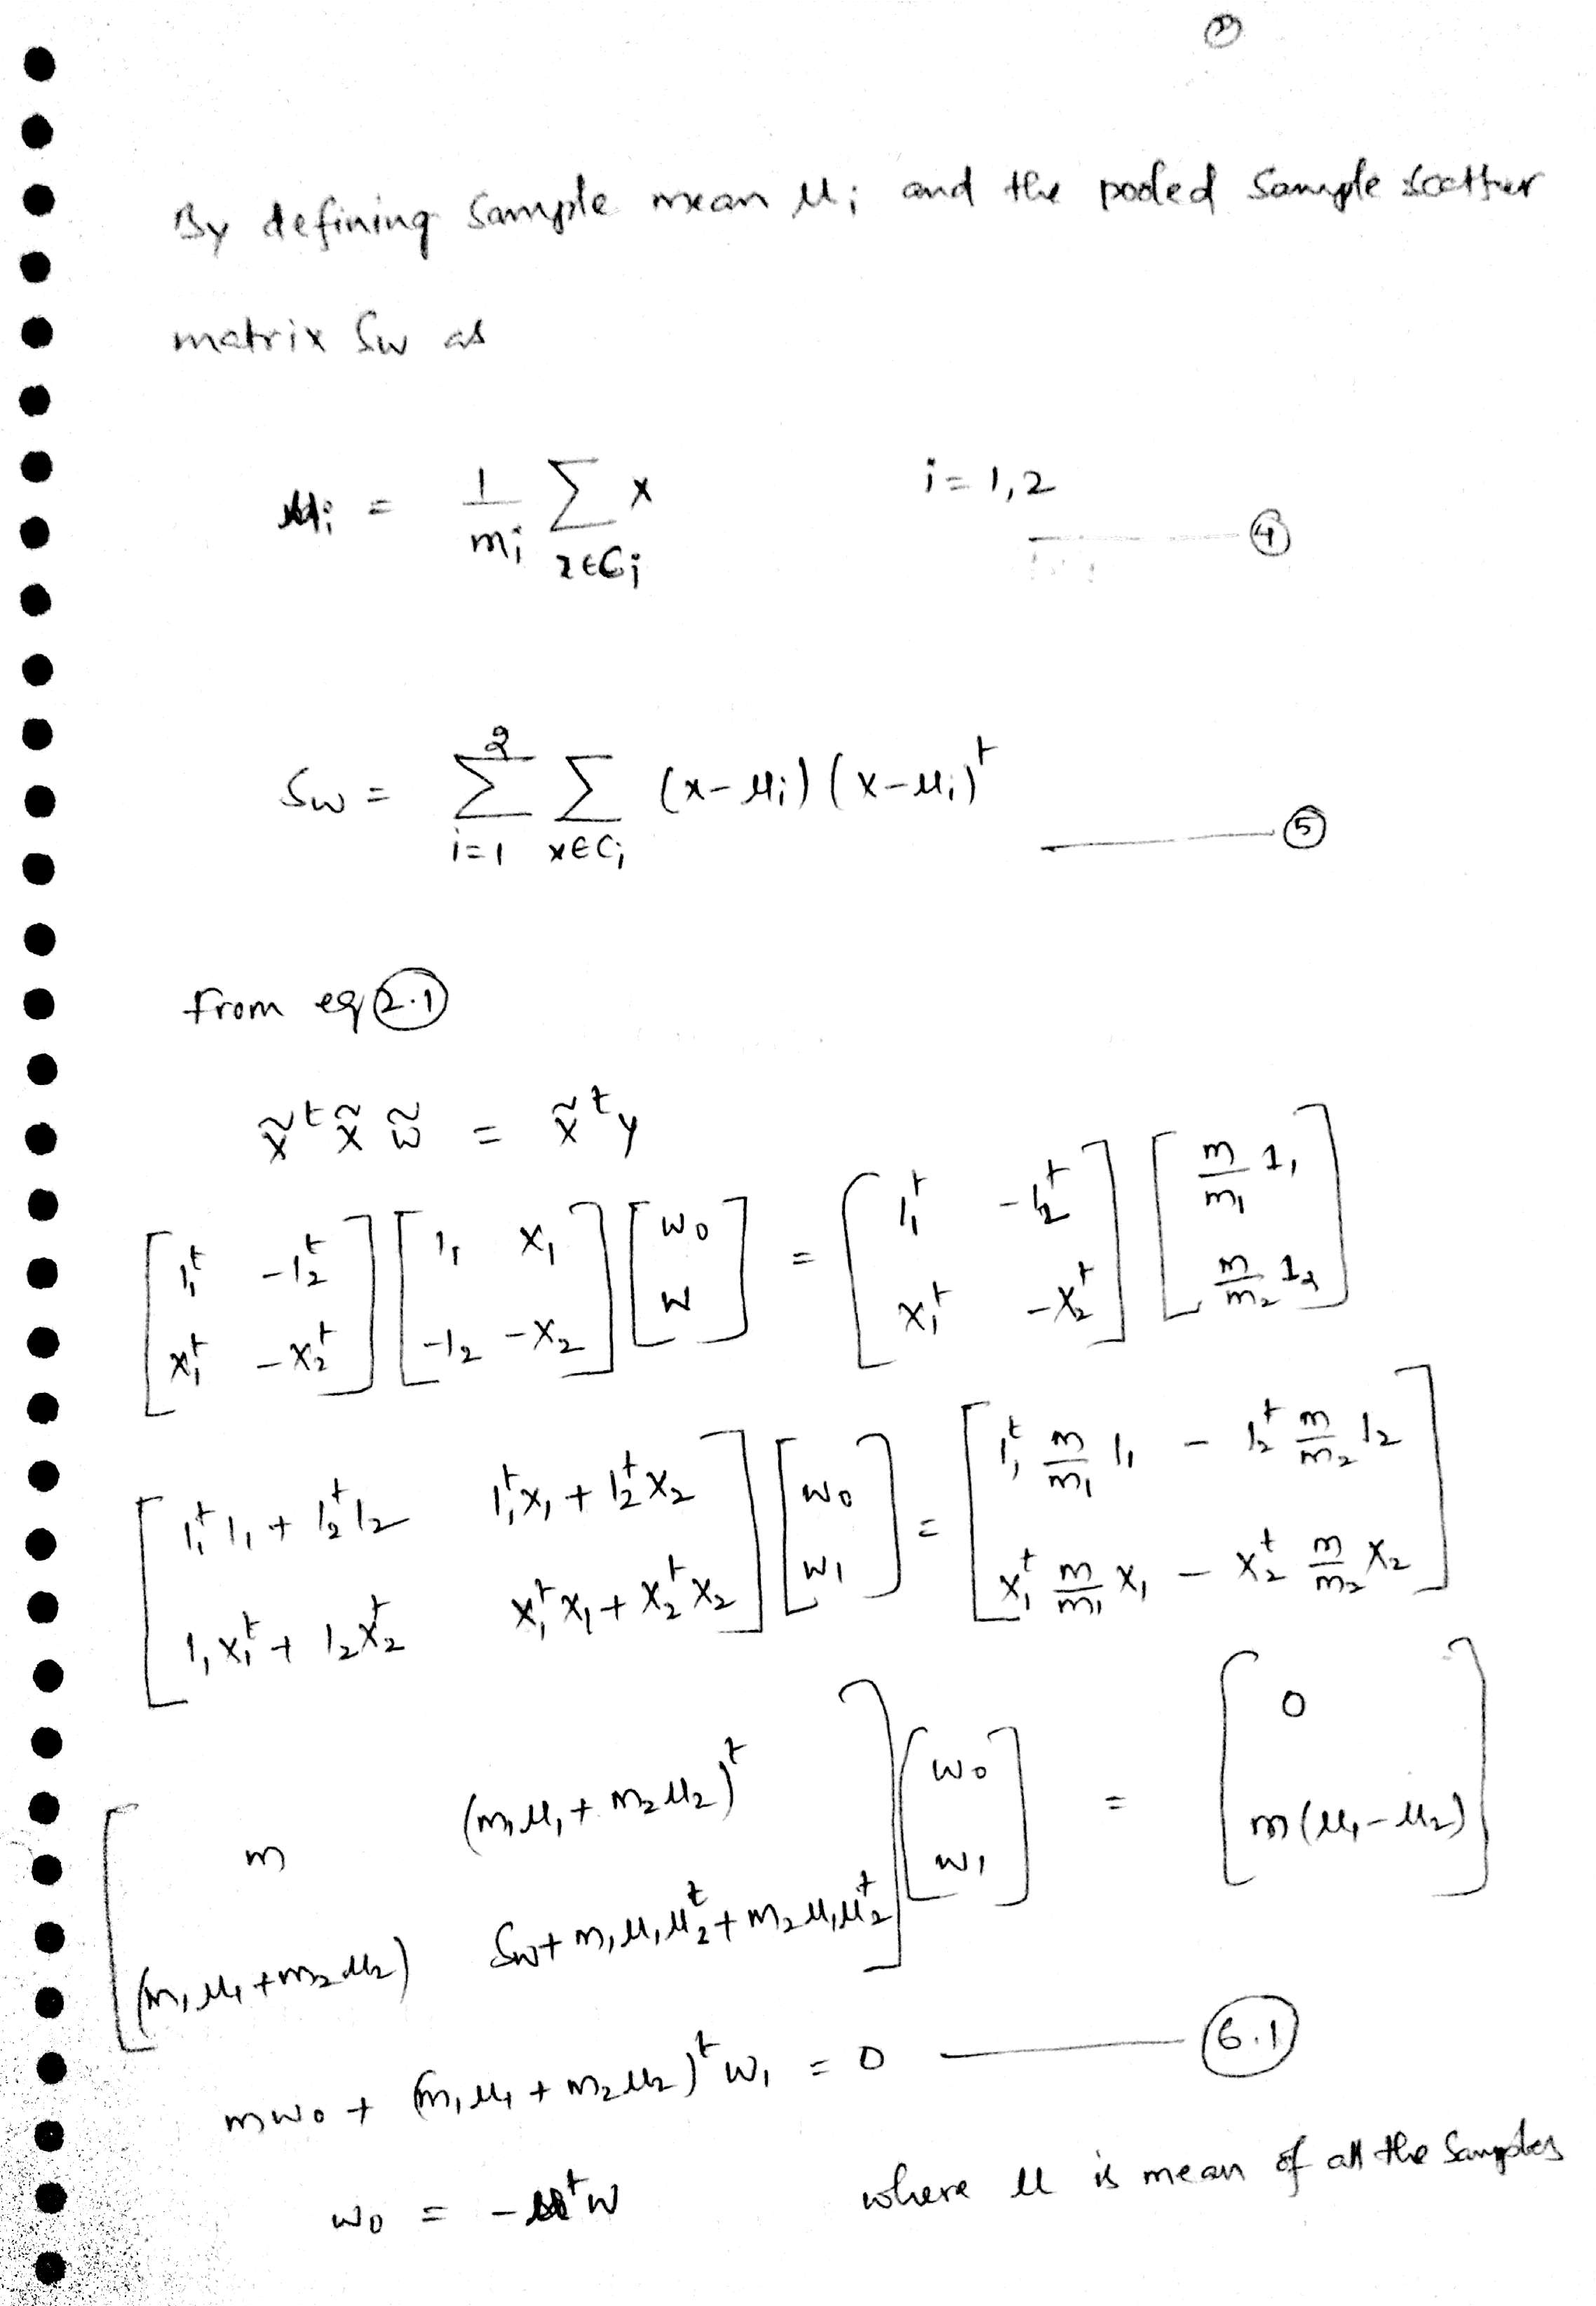 ②
By defining sample mean μi and the pooled sample scatter
matrix Sw as
μi = 1/mi ∑x∈Ci x i = 1,2 —— ④
Sw = ∑i=1^2 ∑x∈Ci (x-μi)(x-μi)^t —— ⑤
from eq (2.1)
x̃^t x̃ w̃ = x̃^t y
[1₁^t -1₂^t ; x₁^t -x₂^t] [1₁ x₁ ; -1₂ -x₂] [w₀ ; w] = [1₁^t -1₂^t ; x₁^t -x₂^t] [m/m₁ 1₁ ; m/m₂ 1₂]
[1₁^t 1₁ + 1₂^t 1₂ 1₁^t x₁ + 1₂^t x₂ ; 1₁ x₁^t + 1₂ x₂^t x₁^t x₁ + x₂^t x₂] [w₀ ; w₁] = [1₁^t m/m₁ 1₁ - 1₂^t m/m₂ 1₂ ; x₁^t m/m₁ x₁ - x₂^t m/m₂ x₂]
[m (m₁μ₁ + m₂μ₂)^t ; (m₁μ₁ + m₂μ₂) Sw + m₁μ₁μ₂^t + m₂μ₁μ₂^t] [w₀ ; w₁] = [0 ; m(μ₁ - μ₂)]
mw₀ + (m₁μ₁ + m₂μ₂)^t w₁ = 0 —— (6.1)
w₀ = -μ^t w where μ is mean of all the samples